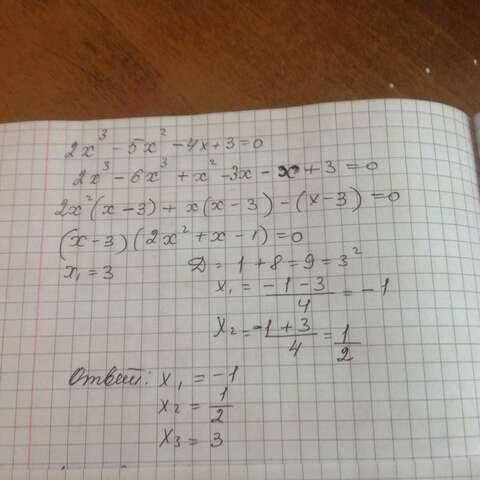 2x³ - 5x² - 4x + 3 = 0
2x³ - 6x³ + x² - 3x - x + 3 = 0
2x²(x - 3) + x(x - 3) - (x - 3) = 0
(x - 3)(2x² + x - 1) = 0
x₁ = 3 Д = 1 + 8 = 9 = 3²
x₁ = (-1 - 3)/4 = -1
x₂ = (-1 + 3)/4 = 1/2
Ответ: x₁ = -1
x₂ = 1/2
x₃ = 3